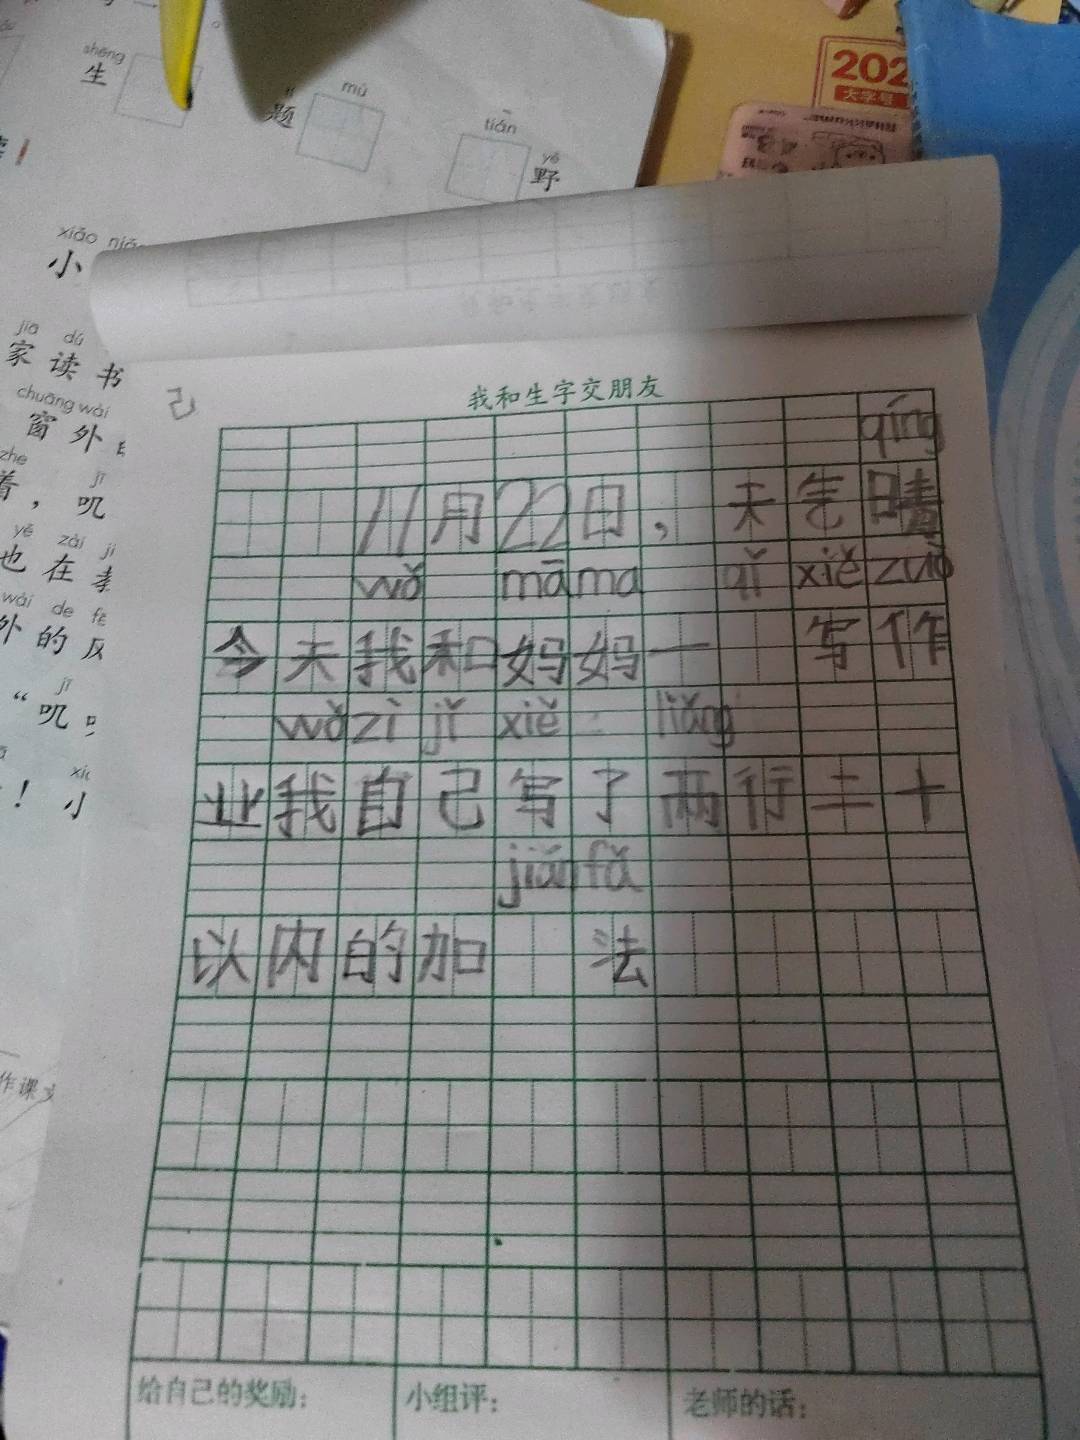 shēng
生
mù
题
tián
yě
野
202
大字号
xiǎo
小
jiā dú
家读书
chuāng wài
窗外
zhe jī
着，叽
yě zài jī
也在
wài de
外的
jī
“叽
！小
作课文
己
我和生字交朋友
qíng
11月22日，天气晴
wǒ māma qǐ xiě zuò
今天我和妈妈一 写作
wǒ zì jǐ xiě liǎng
业我自己写了两行二十
jiǎn fǎ
以内的加 法
给自己的奖励：
小组评：
老师的话：